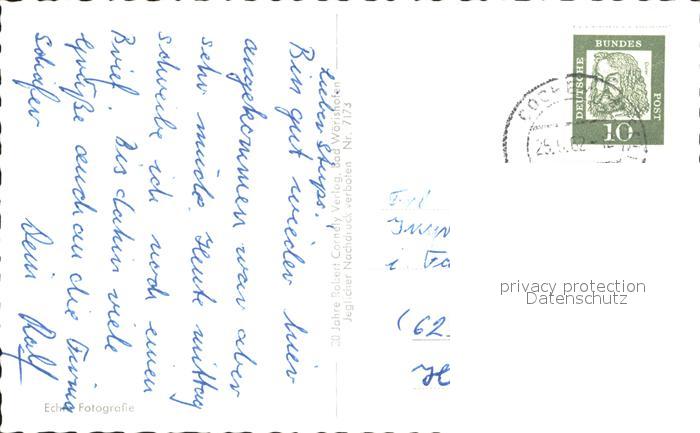 Lieber Stups!
Bin gut wieder hier
angekommen war aber
sehr müde. Heute mittag
schreibe ich noch einen
Brief. Bis dahin viele
Grüße auch an die Firma
Schäfer
Dein Ralf
Echte Fotografie
30 Jahre Robert Connody Verlag, Bad Wörishofen
Jeglicher Nachdruck verboten Nr. 7/173
DEUTSCHE
BUNDES
POST
10
Frl
i. Fa
(62
privacy protection
Datenschutz